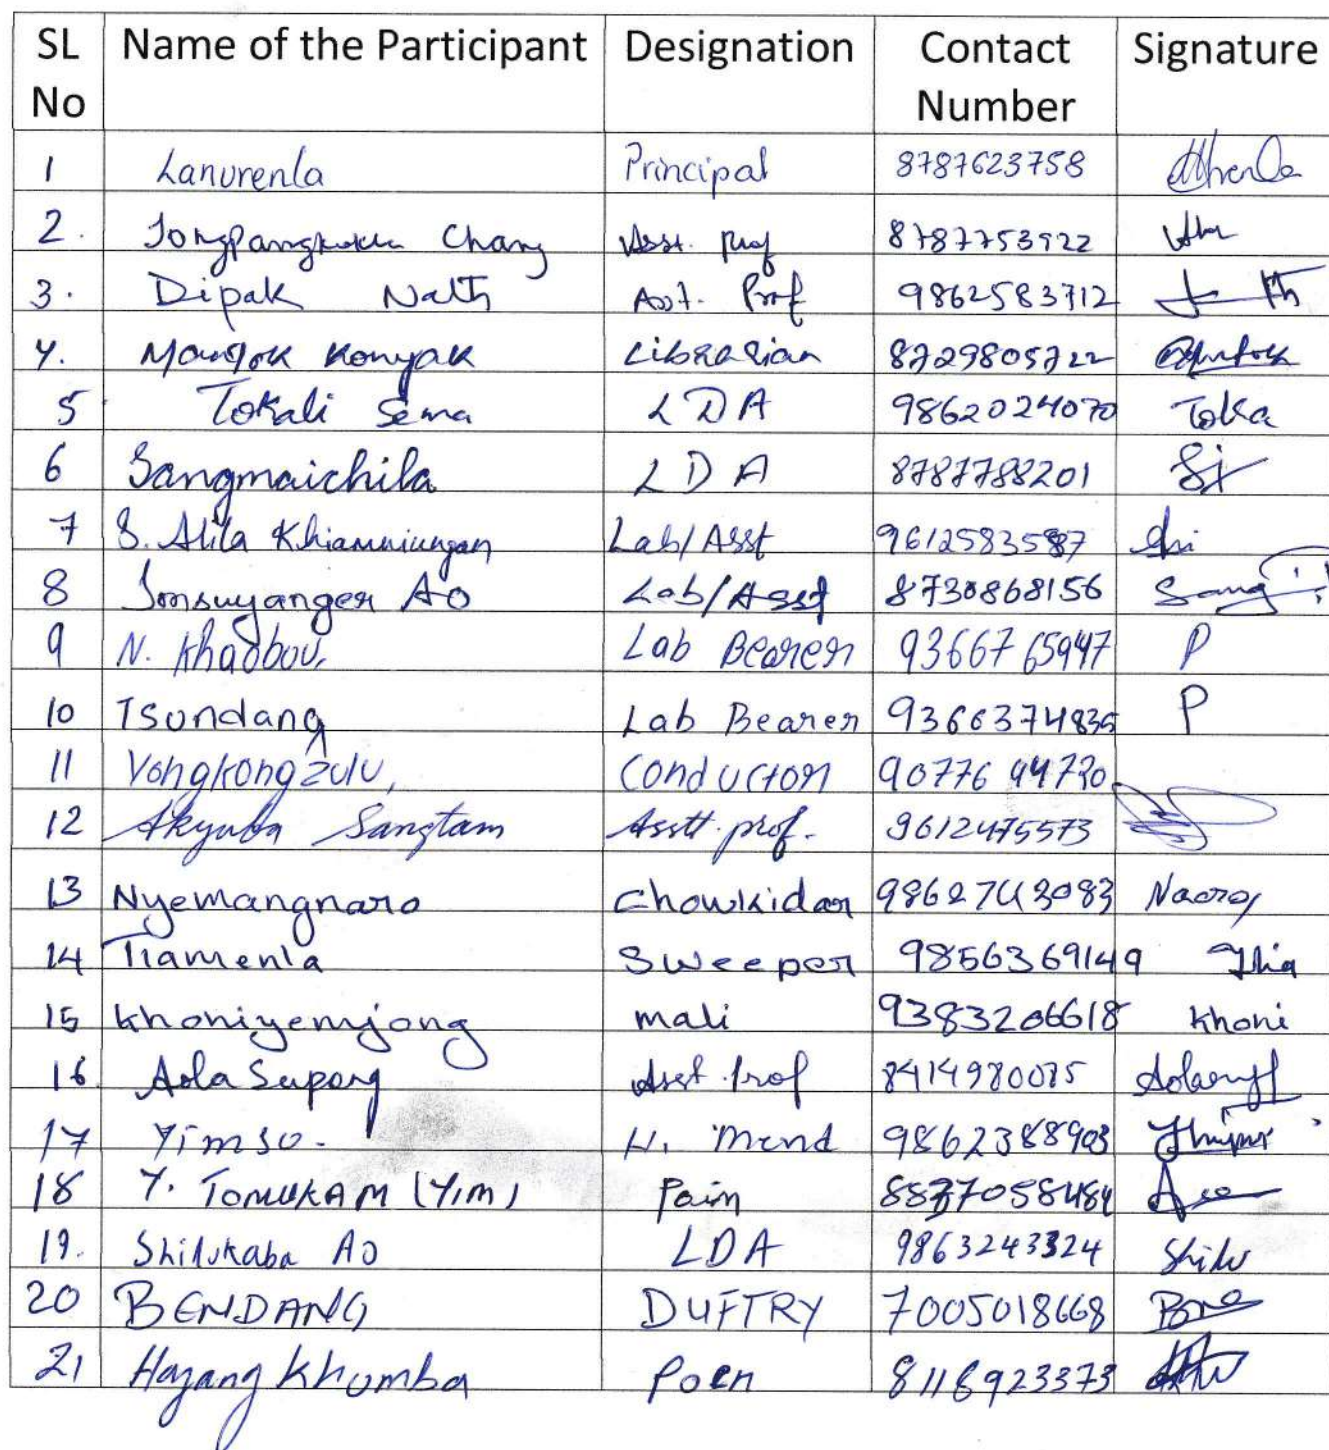 SL No Name of the Participant Designation Contact Number Signature
1 Lanurenla Principal 8787623758
2. Chang Asst. Prof 8787753922
3. Dipak Nath Asst. Prof 9862583712
4. Mangok Konyak Librarian 8729805722
5 Tokali Sema LDA 9862024070 Toka
6 Sangmaichila LDA 8787788201
7 S. Alila Khiamniungan Lab/Asst 9612583587
8 Imsuyanger Ao Lab/Asst 8730868156 Sang
9 N. Khaobou, Lab Bearer 9366765947 P
10 Tsundang Lab Bearer 9366374835 P
11 Vongkong Zulu, Conductor 9077694720
12 Akyuba Sangtam Asstt. prof. 9612475573
13 Nyemangnaro Chowkidar 9862743083 Naoro
14 Tiamenla Sweeper 9856369149
15 Khoniyemjong mali 9383206618 Khoni
16 Aola Supong Asst. Prof 8414980085
17 Yimso. H. Mend 9862388903
18 Y. TOMUKAM (Yim) Pain 8837058484
19. Shilukaba Ao LDA 9863243324 Shilu
20 BENDANG DUFTRY 7005018668
21 Hazang Khumba Poen 8118923373